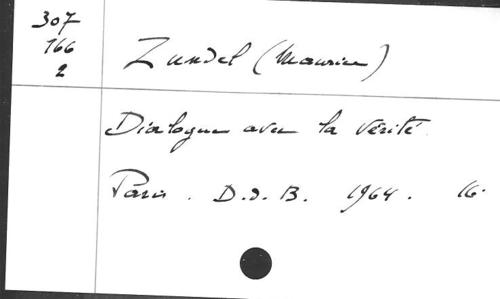 307
166
2
Zundel (Maurice)
Dialogue avec la vérité.
Paris. D.d.B. 1964. 16°